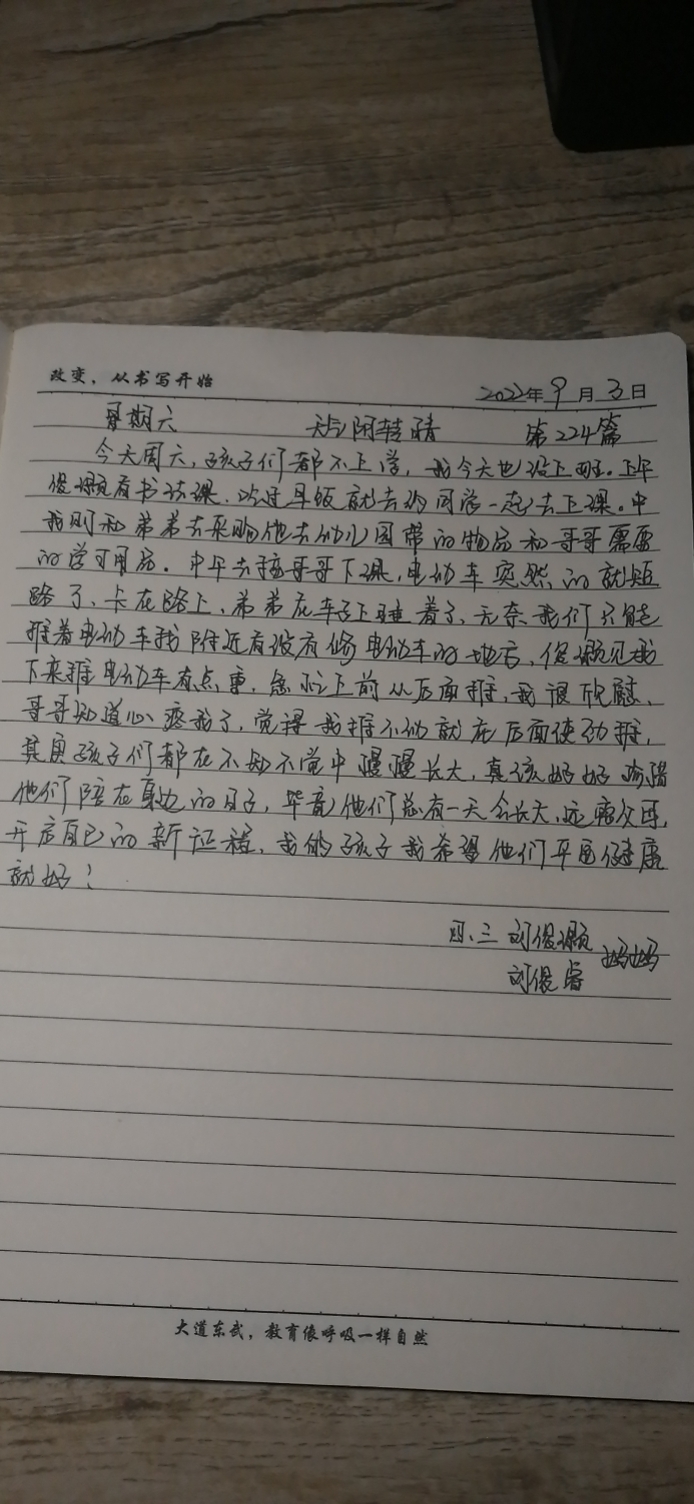 改变，从书写开始
2022年9月3日
星期六 天气阴转晴 第224篇
今天周六，孩子们都不上学，我今天也没上班。上午
俊颢有书法课，吃过早饭就去约同学一起去上课。中
我则和弟弟去采购他去幼儿园带的物品和哥哥需要
的学习用品。中午去接哥哥下课，电动车突然的就短
路了，卡在路上，弟弟在车子上睡着了，无奈我们只能
推着电动车找附近有没有修电动车的地方，俊颢见我
下来推电动车有点重，急忙上前从后面推，我很欣慰、
哥哥知道心疼我了，觉得我推不动就在后面使劲推，
其实孩子们都在不知不觉中慢慢长大，真该好好珍惜
他们陪在身边的日子，毕竟他们总有一天会长大，远离父母，
开启自己的新征程，我的孩子我希望他们平安健康
就好！
四、三 刘俊颢 妈妈
刘俊睿
大道东武，教育像呼吸一样自然